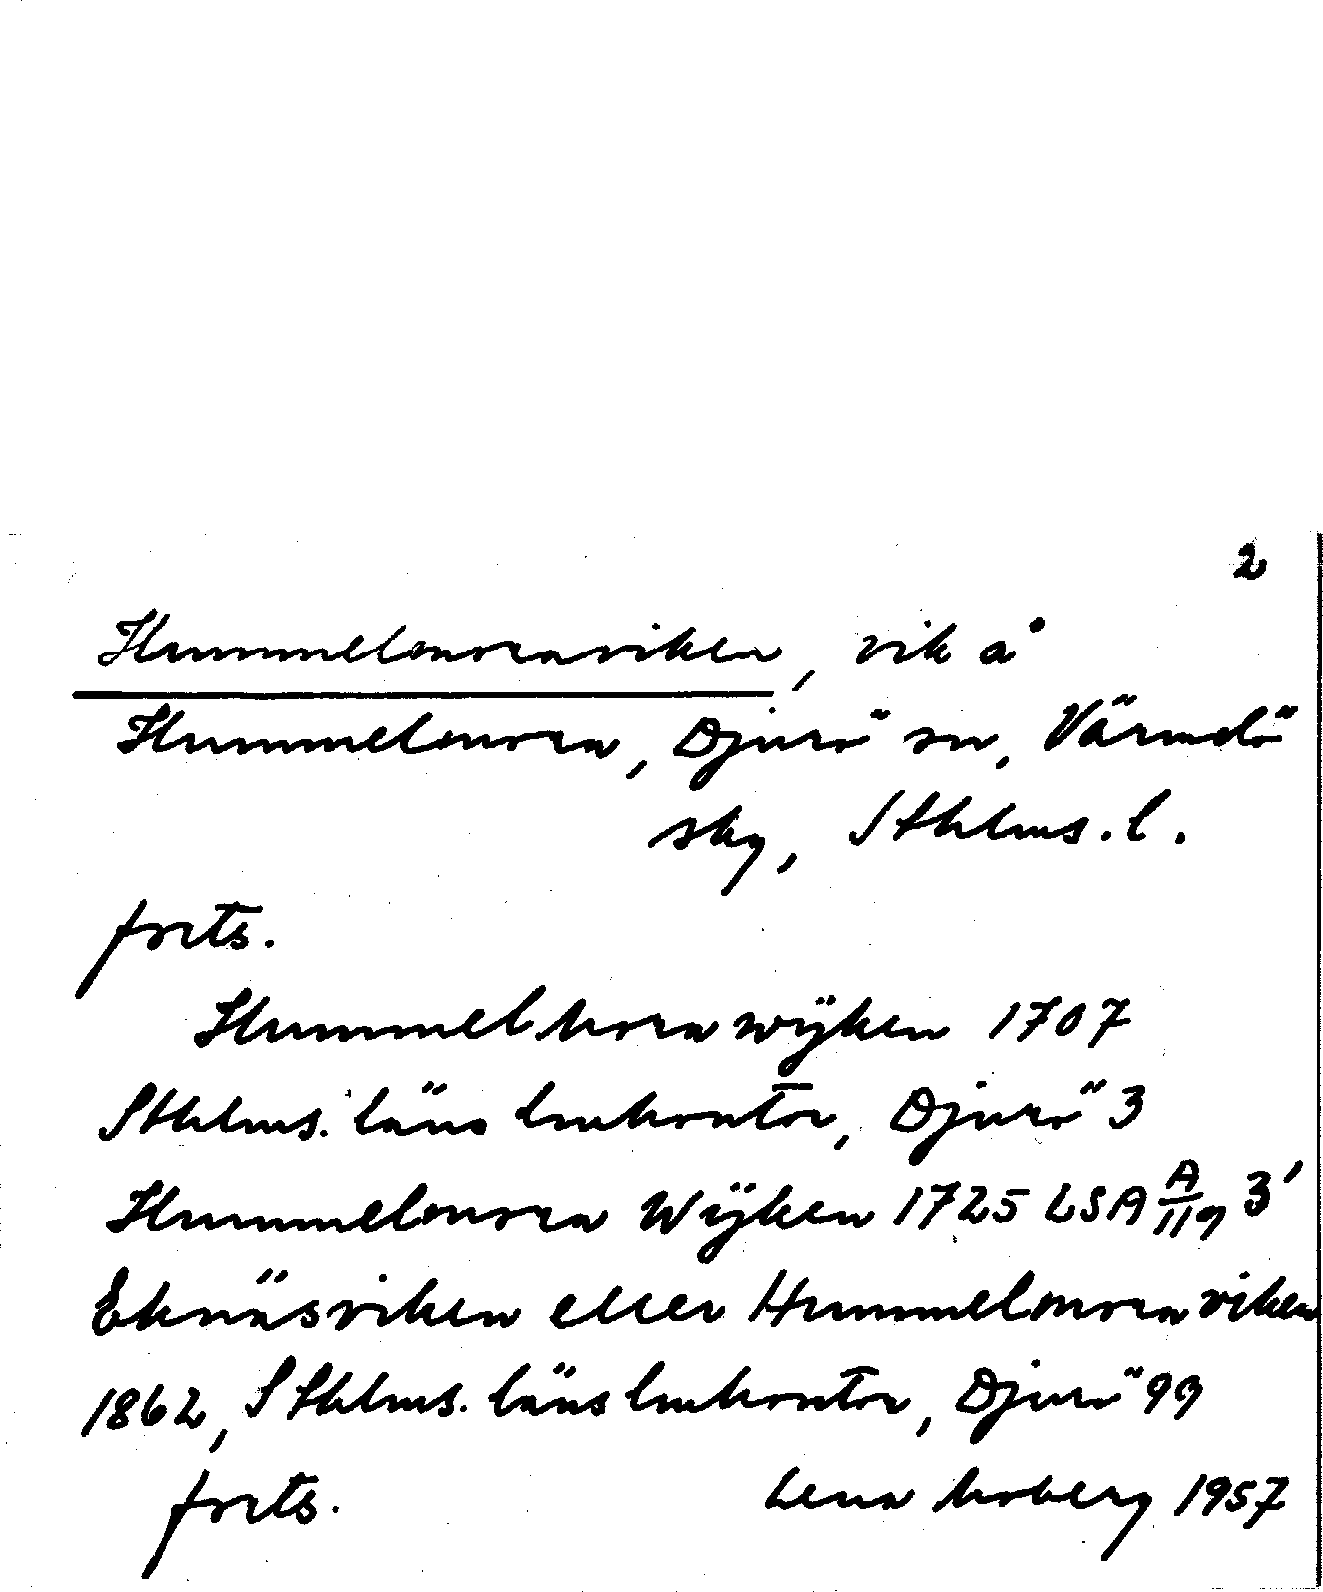 2
Hummelmoraviken, vik å
Hummelmora, Djurö sn, Värmdö
skg, Sthlms. l.
forts.
Hummel Mora wÿken 1707
Sthlms. läns lmkontor, Djurö 3
Hummelmora Wÿken 1725 LSA A/119 3'
Eknäsviken eller Hummelmora viken
1862, Sthlms. läns lmkontor, Djurö 99
forts. Lena Moberg 1957